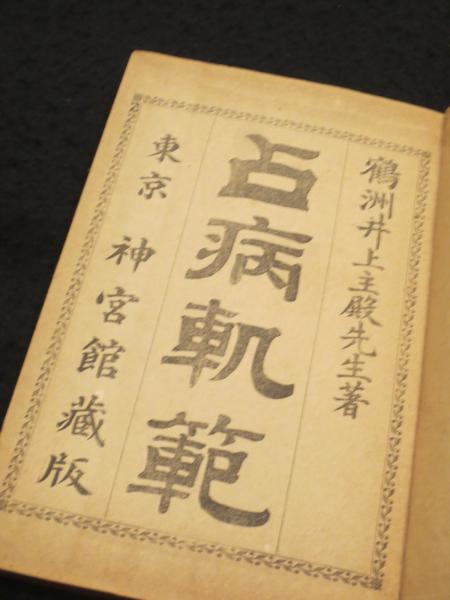 鶴洲井上主殿先生著
占病軌範
東京 神宮館藏版